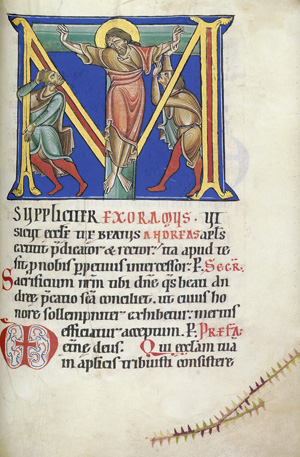 M
SUPPLICITER EXORAMUS. UT
sicut eccle tue beatus ANDREAS apls
extitit p̄dicator & rector. ita apud te
sit p nobis ppetuus intercessor. P. SECR.
Sacrificium nrm̄ tibi dne q̄s beati an
dree p̄catio sc̄a conciliet. ut cuius ho
nore sollempniter exhibetur. meritis
efficiatur acceptum. P. PREFA
ęt̄ne deus. Qui ecclam tuā
in ap̄licis tribuisti consistere